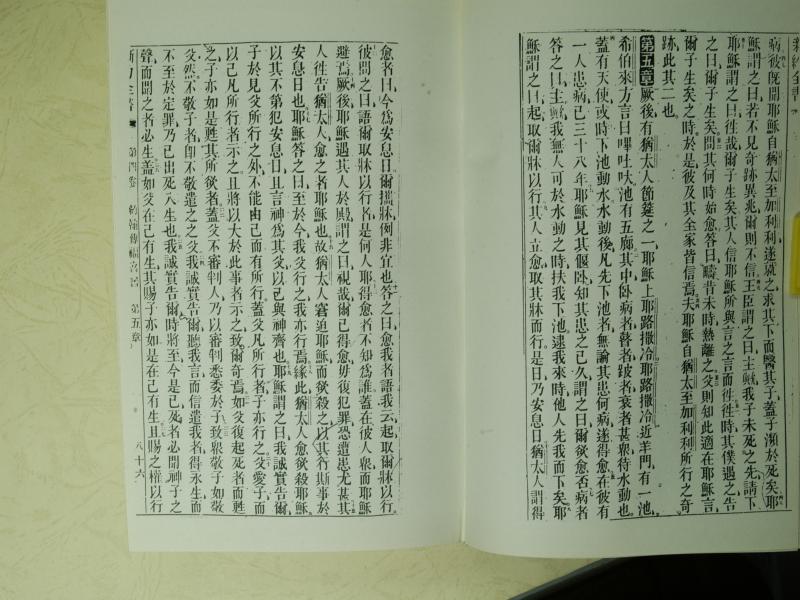 新約全書
病彼既聞耶穌自猶太至加利利遂就之求其下而醫其子蓋子瀕於死矣耶
穌謂之曰若不見奇跡異兆爾則不信王臣謂之曰主歟我子未死之先請下
耶穌謂之曰往哉爾子生矣其人信耶穌所與言之言而往往時其僕遇之告
之曰爾子生矣問其何時始愈答曰疇昔未時熱離之父則知此適在耶穌言
爾子生矣之時於是彼及其全家皆信焉夫耶穌自猶太至加利利所行之奇
跡此其二也
第五章厥後有猶太人節筵之一耶穌上耶路撒冷耶路撒冷近羊門有一池
希伯來方言曰嗶吐呔池有五廊其中臥病者瞽者跛者衰者甚衆待水動也
蓋有天使或時下池動水水動後凡先下池者無論其患何病遂得愈在彼有
一人患病已三十八年耶穌見其偃臥知其患之已久謂之曰爾欲愈否病者
答之曰主歟我無人可於水動之時扶我下池逮我來時他人先我而下矣耶
穌謂之曰起取爾牀以行其人立愈取其牀而行是日乃安息日猶太人謂得
愈者曰今爲安息日爾攜牀例非宜也答之曰愈我者語我云起取爾牀以行
彼問之曰語爾取牀以行者是何人耶得愈者不知爲誰蓋在彼人衆而耶穌
避焉厥後耶穌遇其人於殿謂之曰視哉爾已得愈毋復犯罪恐遭患尤甚其
人往告猶太人愈之者耶穌也故猶太人窘迫耶穌而欲殺之以其行斯事於
安息日也耶穌答之曰至於今我父行之我亦行焉緣此猶太人愈欲殺耶穌
以其不第犯安息日且言神爲其父以己與神齊也耶穌謂之曰我誠實告爾
子於見父所行之外不能由己而有所行蓋父凡所行者子亦行之父愛子而
以己凡所行者示之且將以大於此事者示之致爾奇焉如父復起死者而甦
之子亦如是甦其所欲者蓋父不審判人乃以審判悉委於子致衆敬子如敬
父然不敬子者卽不敬遣之之父我誠實告爾聽我言而信遣我者得永生而
不至於定罪乃已出死入生也我誠實告爾時將至今是已死者必聞神子之
聲而聞之者必生蓋如父在己有生其賜子亦如是在己有生且賜之權以行
新約全書 第四卷 約翰傳福音書 第五章 八十六